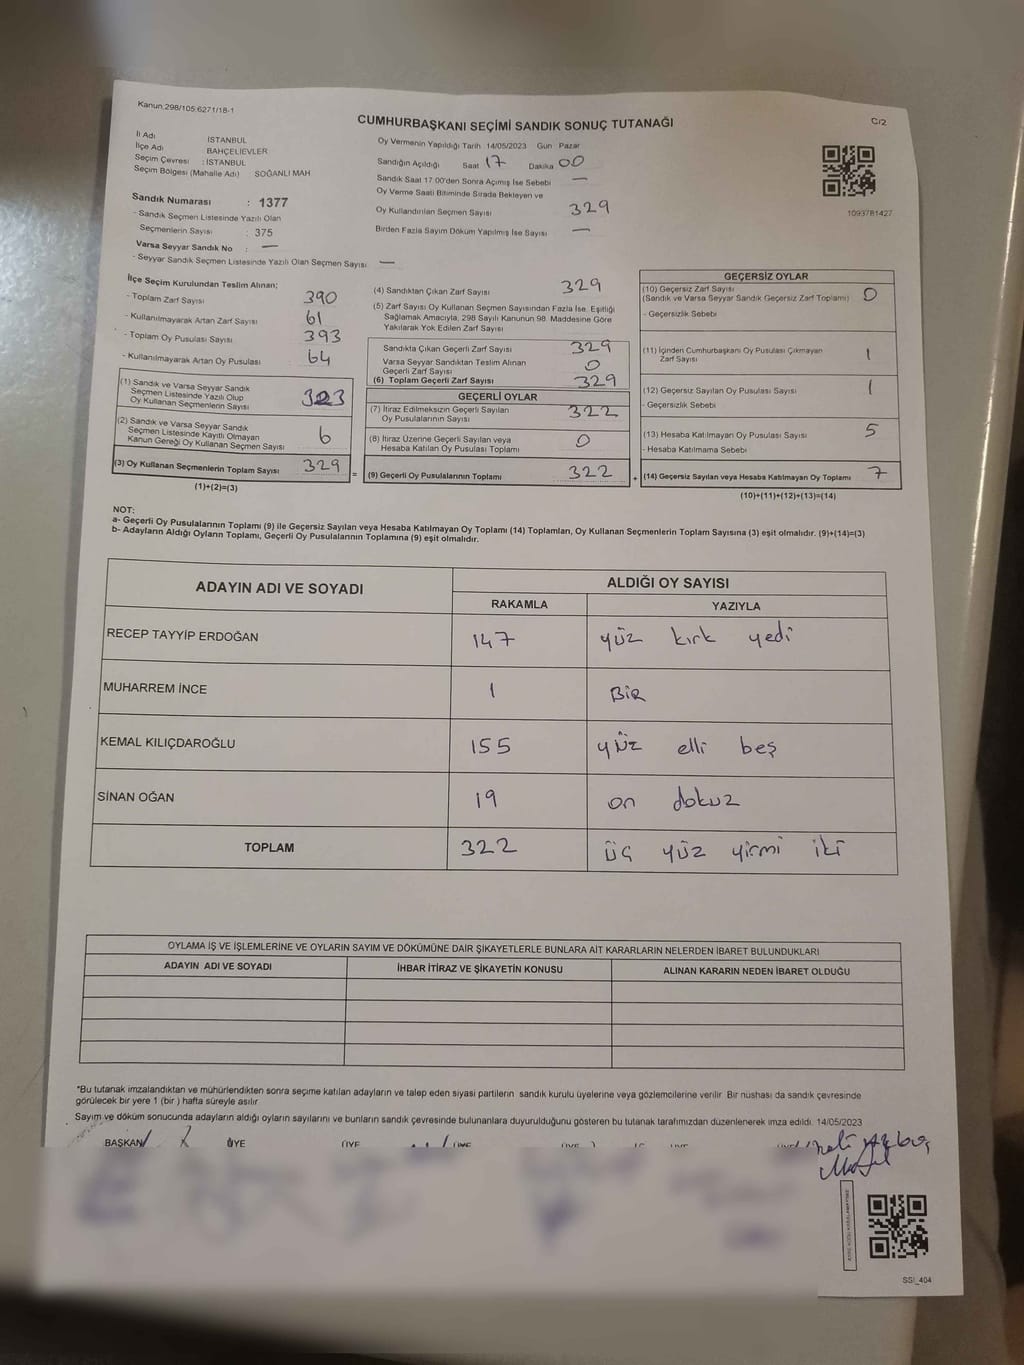 Kanun 298/105 6271/18-1
C/2
CUMHURBAŞKANI SEÇİMİ SANDIK SONUÇ TUTANAĞI
İl Adı İSTANBUL
İlçe Adı BAHÇELİEVLER
Seçim Çevresi : İSTANBUL
Seçim Bölgesi (Mahalle Adı) SOĞANLI MAH
Sandık Numarası : 1377
- Sandık Seçmen Listesinde Yazılı Olan
Seçmenlerin Sayısı : 375
Varsa Seyyar Sandık No : —
- Seyyar Sandık Seçmen Listesinde Yazılı Olan Seçmen Sayısı —
Oy Vermenin Yapıldığı Tarih 14/05/2023 Gün Pazar
Sandığın Açıldığı Saat 17 Dakika 00
Sandık Saat 17.00'den Sonra Açımış İse Sebebi —
Oy Verme Saati Bitiminde Sırada Bekleyen ve
Oy Kullandırılan Seçmen Sayısı 329
Birden Fazla Sayım Döküm Yapılmış İse Sayısı —
1093781427
İlçe Seçim Kurulundan Teslim Alınan;
- Toplam Zarf Sayısı 390
- Kullanılmayarak Artan Zarf Sayısı 61
- Toplam Oy Pusulası Sayısı 393
- Kullanılmayarak Artan Oy Pusulası 64
(1) Sandık ve Varsa Seyyar Sandık
Seçmen Listesinde Yazılı Olup
Oy Kullanan Seçmenlerin Sayısı 323
(2) Sandık ve Varsa Seyyar Sandık
Seçmen Listesinde Kayıtlı Olmayan
Kanun Gereği Oy Kullanan Seçmen Sayısı 6
(3) Oy Kullanan Seçmenlerin Toplam Sayısı 329
(1)+(2)=(3)
(4) Sandıktan Çıkan Zarf Sayısı 329
(5) Zarf Sayısı Oy Kullanan Seçmen Sayısından Fazla İse, Eşitliği
Sağlamak Amacıyla, 298 Sayılı Kanunun 98. Maddesine Göre
Yakılarak Yok Edilen Zarf Sayısı
Sandıkta Çıkan Geçerli Zarf Sayısı 329
Varsa Seyyar Sandıktan Teslim Alınan
Geçerli Zarf Sayısı 0
(6) Toplam Geçerli Zarf Sayısı 329
GEÇERLİ OYLAR
(7) İtiraz Edilmeksizin Geçerli Sayılan
Oy Pusulalarının Sayısı 322
(8) İtiraz Üzerine Geçerli Sayılan veya
Hesaba Katılan Oy Pusulası Toplamı 0
= (9) Geçerli Oy Pusulalarının Toplamı 322
GEÇERSİZ OYLAR
(10) Geçersiz Zarf Sayısı
(Sandık ve Varsa Seyyar Sandık Geçersiz Zarf Toplamı) 0
- Geçersizlik Sebebi
(11) İçinden Cumhurbaşkanı Oy Pusulası Çıkmayan
Zarf Sayısı 1
(12) Geçersiz Sayılan Oy Pusulası Sayısı 1
- Geçersizlik Sebebi
(13) Hesaba Katılmayan Oy Pusulası Sayısı 5
- Hesaba Katılmama Sebebi
+ (14) Geçersiz Sayılan veya Hesaba Katılmayan Oy Toplamı 7
(10)+(11)+(12)+(13)=(14)
NOT:
a- Geçerli Oy Pusulalarının Toplamı (9) ile Geçersiz Sayılan veya Hesaba Katılmayan Oy Toplamı (14) Toplamları, Oy Kullanan Seçmenlerin Toplam Sayısına (3) eşit olmalıdır. (9)+(14)=(3)
b- Adayların Aldığı Oyların Toplamı, Geçerli Oy Pusulalarının Toplamına (9) eşit olmalıdır.
ADAYIN ADI VE SOYADI ALDIĞI OY SAYISI
RAKAMLA YAZIYLA
RECEP TAYYİP ERDOĞAN 147 yüz kırk yedi
MUHARREM İNCE 1 BİR
KEMAL KILIÇDAROĞLU 155 yüz elli beş
SİNAN OĞAN 19 on dokuz
TOPLAM 322 üç yüz yirmi iki
OYLAMA İŞ VE İŞLEMLERİNE VE OYLARIN SAYIM VE DÖKÜMÜNE DAİR ŞİKAYETLERLE BUNLARA AİT KARARLARIN NELERDEN İBARET BULUNDUKLARI
ADAYIN ADI VE SOYADI İHBAR İTİRAZ VE ŞİKAYETİN KONUSU ALINAN KARARIN NEDEN İBARET OLDUĞU
*Bu tutanak imzalandıktan ve mühürlendikten sonra seçime katılan adayların ve talep eden siyasi partilerin sandık kurulu üyelerine veya gözlemcilerine verilir. Bir nüshası da sandık çevresinde
görülecek bir yere 1 (bir ) hafta süreyle asılır
Sayım ve döküm sonucunda adayların aldığı oyların sayılarını ve bunların sandık çevresinde bulunanlara duyurulduğunu gösteren bu tutanak tarafımızdan düzenlenerek imza edildi. 14/05/2023
BAŞKAN ÜYE
SSI_404